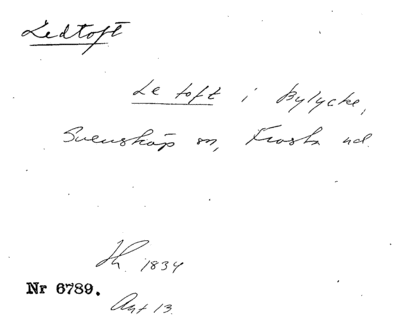 Ledtoft
Le toft i Bylycke,
Svensköp sn, Frosta hd.
Jh. 1834
Nr 6789.
Akt 13.